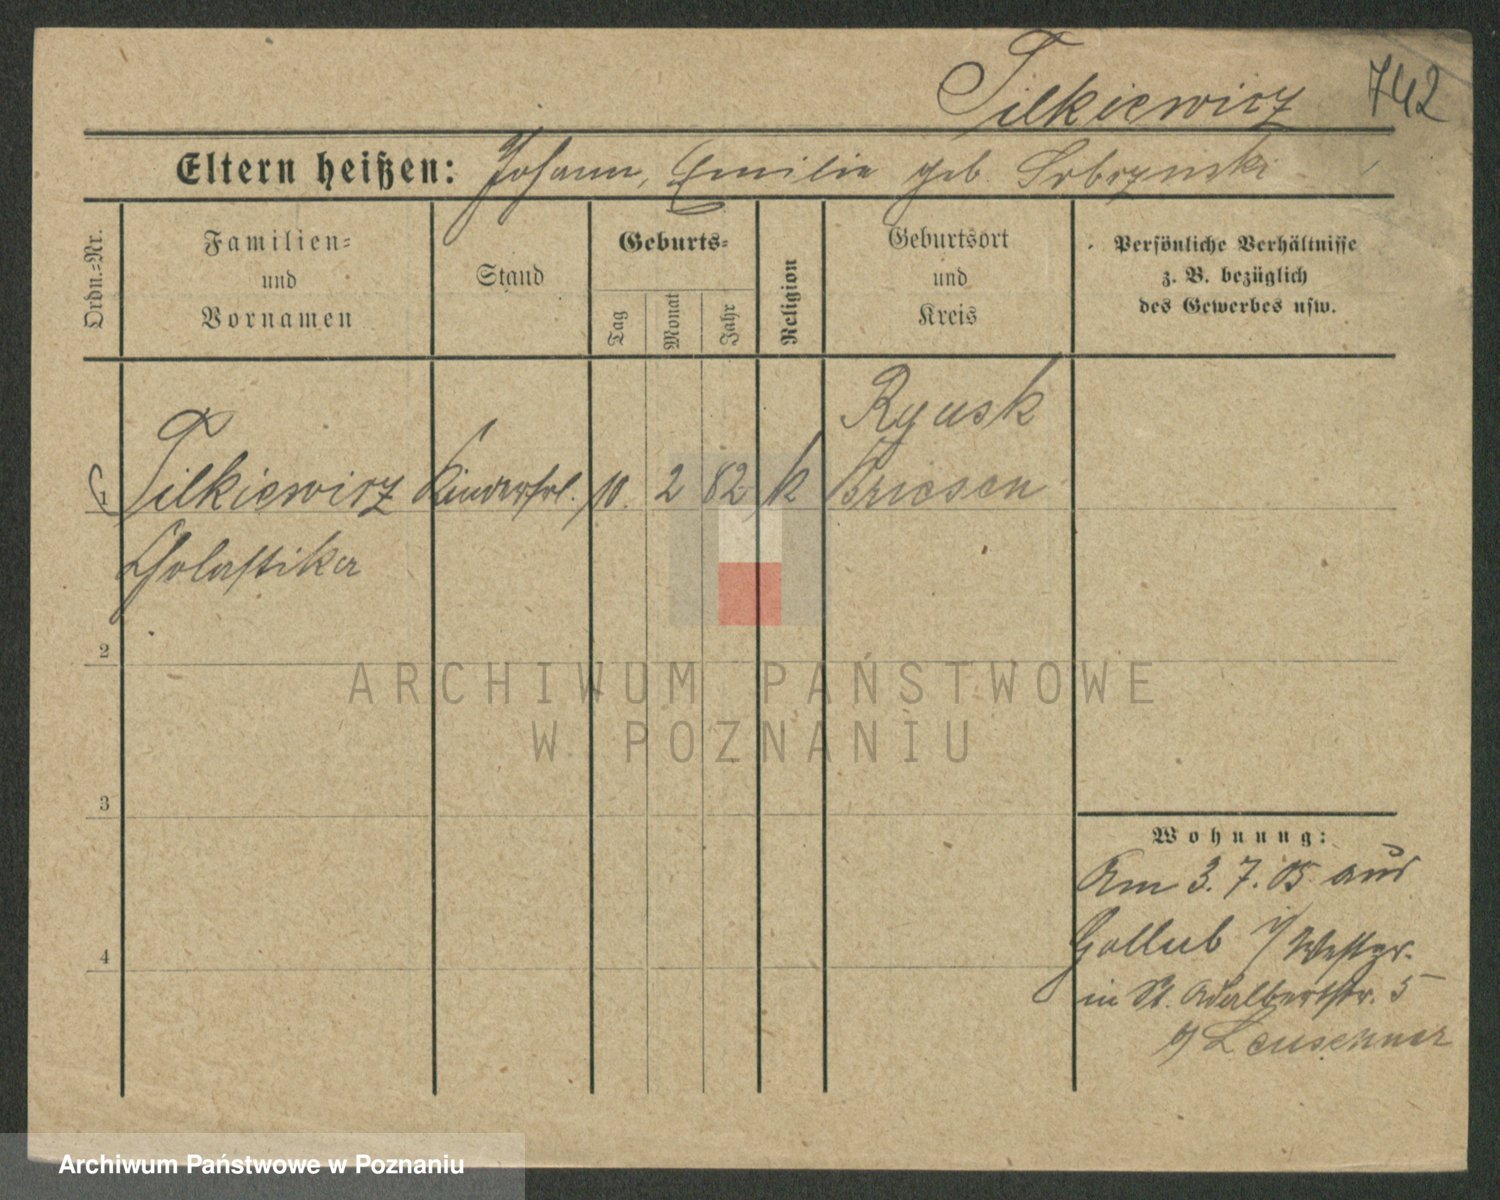 Tilkiewicz 742
Eltern heißen: Johann, Emilie geb. Sobczynski
Ordn.-Nr.
Familien-
und
Vornamen
Stand
Geburts-
Tag
Monat
Jahr
Religion
Geburtsort
und
Kreis
Persönliche Verhältnisse
z. B. bezüglich
des Gewerbes usw.
Rynsk
1 Tilkiewicz Kinderfrl. 10. 2 82 k Briesen
Scholastika
2
3
4
ARCHIWUM PAŃSTWOWE
W POZNANIU
Wohnung:
Am 3. 7. 05 aus
Gollub i/ Westpr.
in St. Adalbertstr. 5
b/ Leuschner
Archiwum Państwowe w Poznaniu